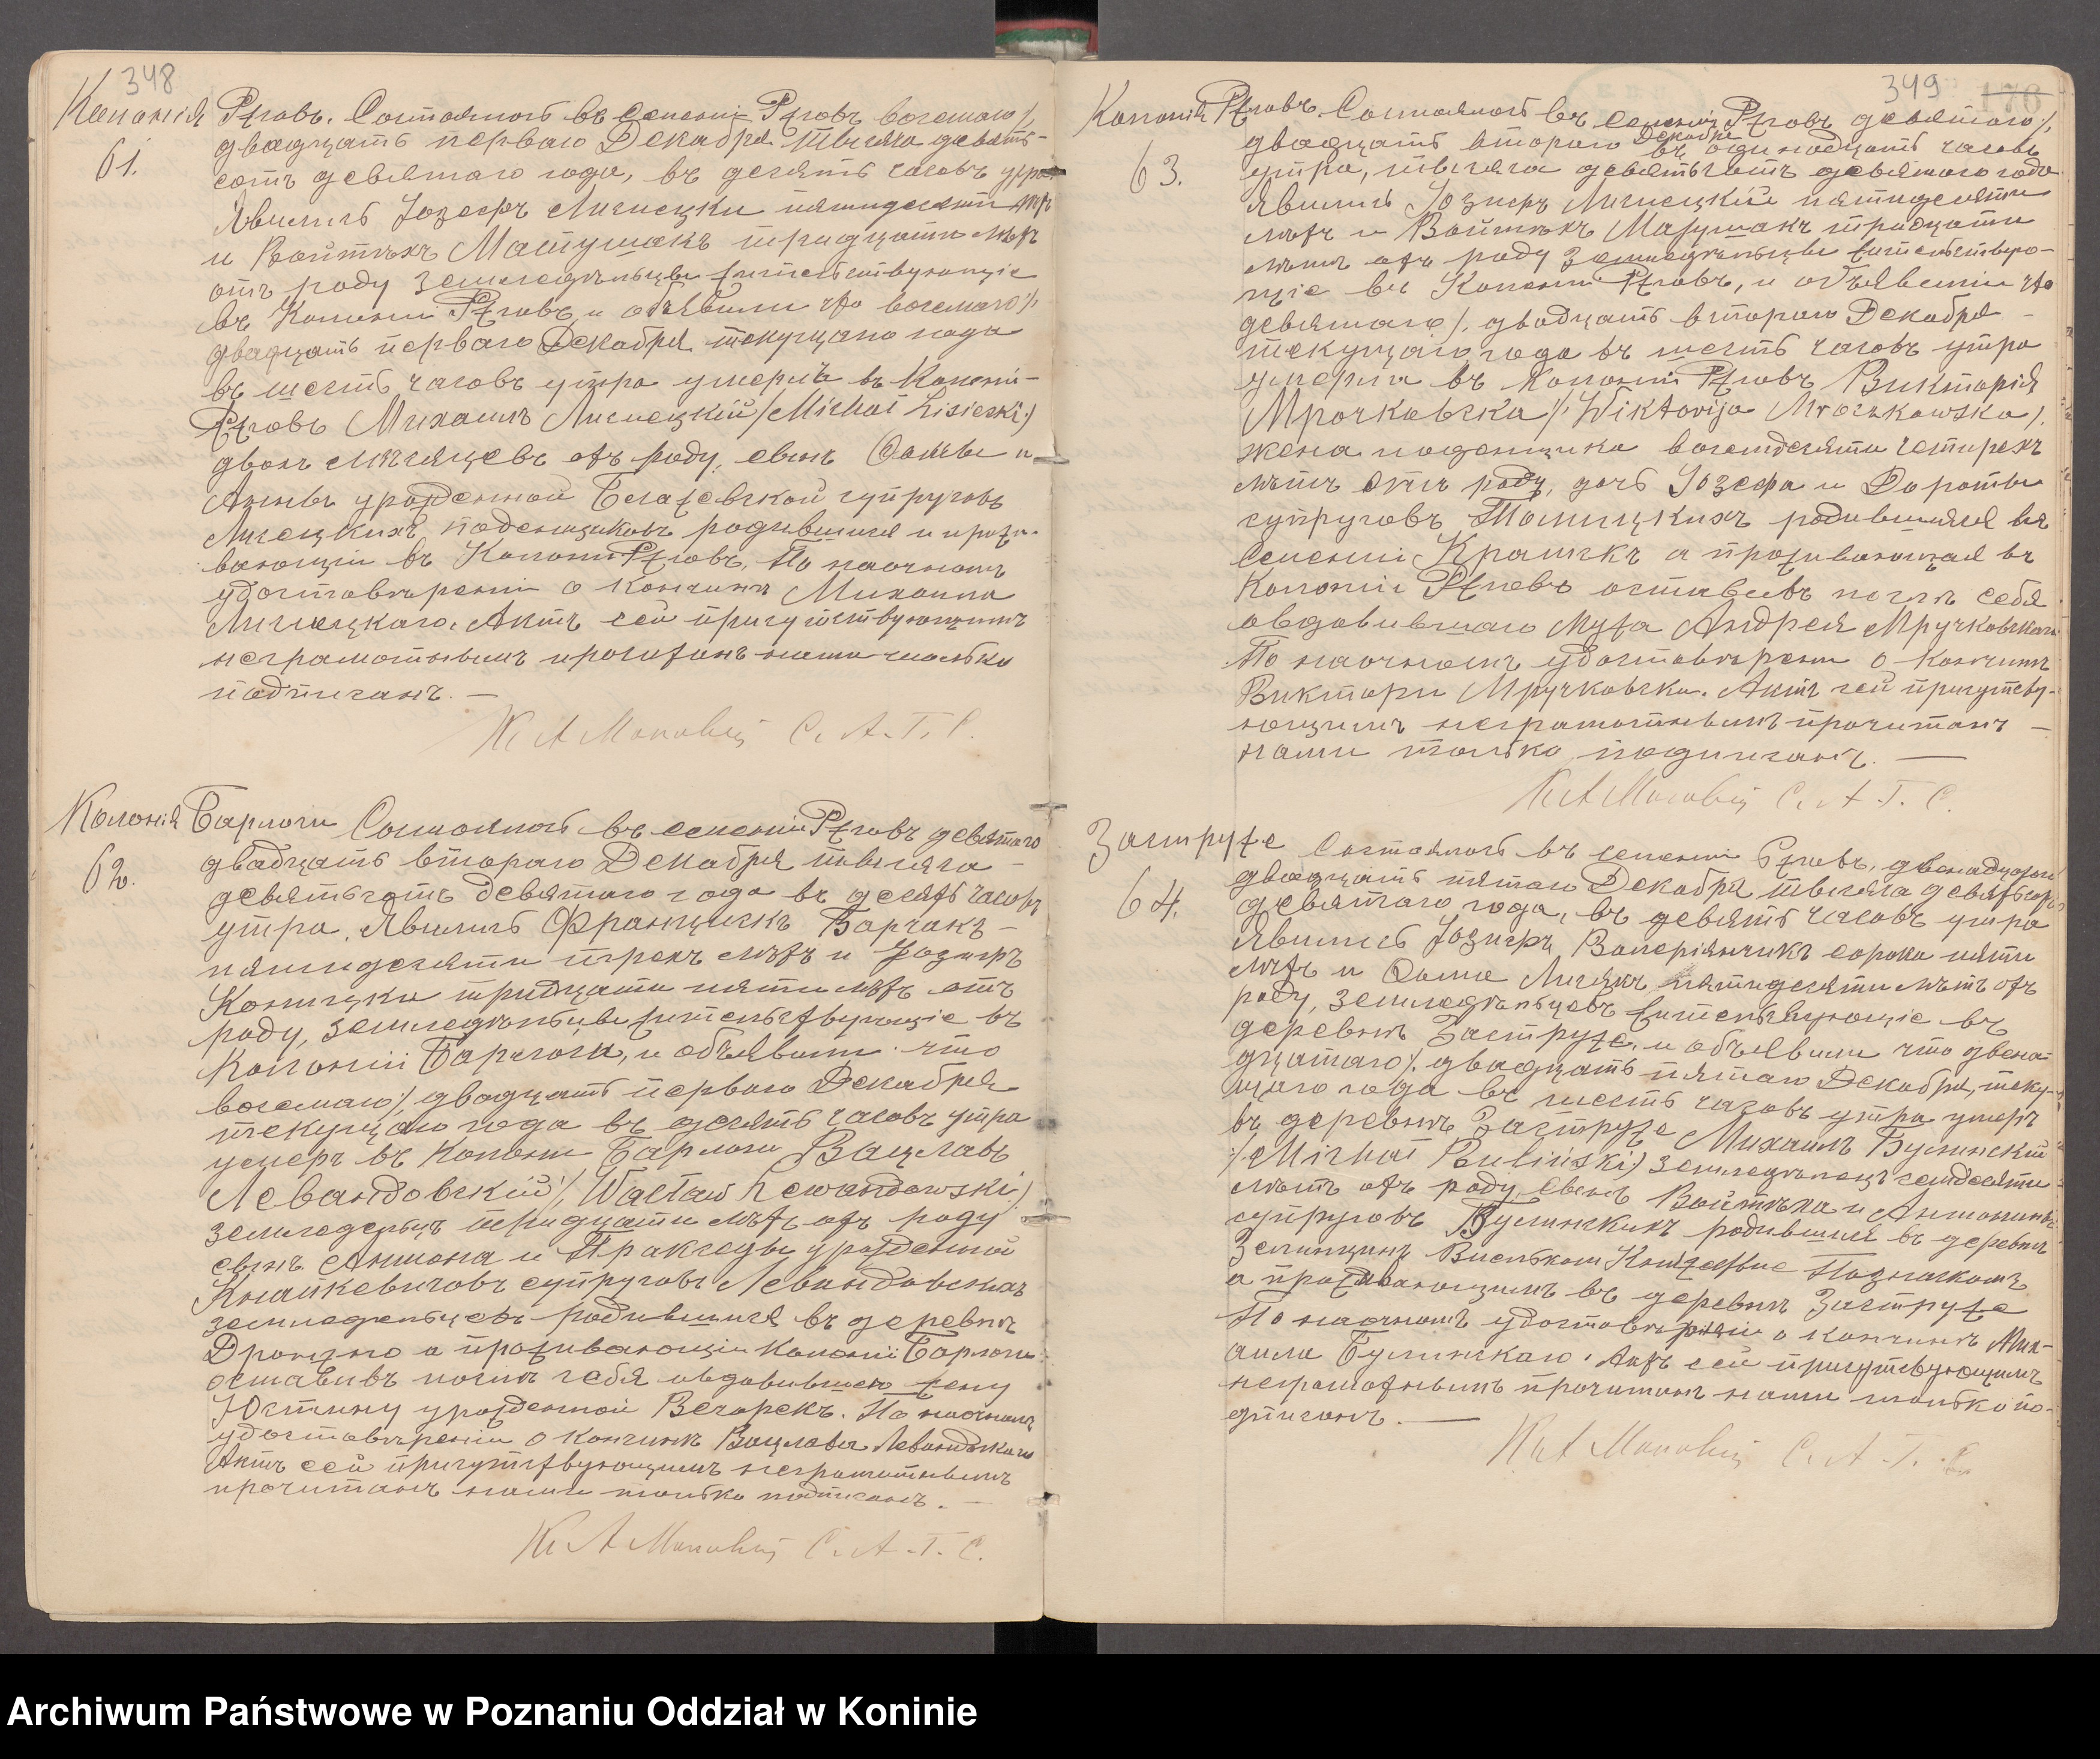 348
Колонія Ржговъ. Состоялось въ селеніи Ржговъ восьмаго /
61. двадцать перваго Декабря тысяча девять-
сотъ девятаго года, въ десять часовъ утра
Явились Іозефъ Лисиецки пятидесяти лѣтъ
и Войтѣхъ Матушакъ тридцати лѣтъ
отъ роду земледѣльцы жительствующіе
въ Колоніи Ржговъ, и объявили что восьмаго /
двадцать перваго Декабря текущаго года
въ шесть часовъ утра умеръ въ Колоніи
Ржговъ Михаилъ Лисиецкій /Michał Lisiecki/
двохъ мѣсяцевъ отъ роду, сынъ Фомы и
Анны урожденной супруговъ
Лисецкихъ поденщиковъ родившійся и прожи-
вающій въ Колоніи Ржговъ. По наочномъ
удостовѣреніи о кончинѣ Михаила
Лисиецкаго. Актъ сей присутствующимъ
неграмотнымъ прочитанъ нами только
подписанъ. —
С. А. Г. С.
Колонія Барлоги Состоялось въ селеніи Ржговъ девятаго
62. двадцать втораго Декабря тысяча
девятьсотъ девятаго года въ десять часовъ
утра, Явились Францискъ Барчакъ
пятидесяти трехъ лѣтъ и Іозефъ
Коницки тридцати пяти лѣтъ отъ
роду, земледѣльцы жительствующіе въ
Колоніи Барлоги, и объявили что
восьмаго / двадцать перваго Декабря
текущаго года въ десять часовъ утра
умеръ въ Колоніи Барлоги Вацлавъ
Левандовскій /Wacław Lewandowski/
земледелецъ тридцати лѣтъ отъ роду
сынъ Антона и Пракседы урожденной
супруговъ Левандовскихъ
земледельцевъ родившійся въ деревнѣ
а проживающій Колоніи Барлоги
оставивъ послѣ себя овдовившею жену
Юстину урожденной Вечорекъ. По наочномъ
удостовѣреніи о кончинѣ Вацлава
Актъ сей присутствующимъ неграмотнымъ
прочитанъ нами только подписанъ. —
С. А. Г. С.
349 176
Колонія Ржговъ. Состоялось въ селеніи Ржговъ девятаго /
двадцать втораго Декабря въ одинадцать часовъ
63. утра, тысяча девятьсотъ девятаго года
Явились Іозефъ Лисиецкій пятидесяти
лѣтъ и Войтѣхъ Матушакъ тридцати
лѣтъ отъ роду земледѣльцы жительствую-
щіе въ Колоніи Ржговъ, и объявили что
девятаго / двадцать втораго Декабря
текущаго года въ шесть часовъ утра
умерла въ Колоніи Ржговъ Викторія
Мрочковска /Wiktorija Mroczkowska/
жена поденщика восемдесяти четырехъ
лѣтъ отъ роду, дочь Іозефа и Дороты
супруговъ Томицкихъ родившаяся въ
селеніи а проживающая въ
Колоніи Ржговъ оставивъ послѣ себя
овдовившаго мужа Андрея Мручковскаго
По наочномъ удостовѣреніи о кончинѣ
Викторіи Мручковски. Актъ сей присутству-
ющимъ неграмотнымъ прочитанъ
нами только подписанъ. —
С. А. Г. С.
Заструже Состоялось въ селеніи Ржговъ, двенадцатаго
двадцать пятаго Декабря тысяча девятьсотъ
64. девятаго года, въ девять часовъ утра
Явились Іозефъ Валеріянчикъ сорока пяти
лѣтъ и Фома Лисякъ пятидесяти лѣтъ отъ
роду, земледѣльцевъ жительствующіе въ
деревнѣ Заструже, и объявили что двена-
дцатаго / двадцать пятаго Декабря, теку-
щаго года въ шесть часовъ утра умеръ
въ деревнѣ Заструже Михаилъ Булинскій
/Michał Buliński/ земледѣлецъ семдесяти
лѣтъ отъ роду сынъ Войтѣха и Антонины
супруговъ Булинскихъ родившійся въ деревнѣ
Великомъ Княжествѣ Познаскомъ
а проживающимъ въ деревнѣ Заструже
По наочномъ удостовѣреніи о кончинѣ Мих-
аила Булинскаго. Актъ сей присутствующимъ
неграмотнымъ прочитанъ нами только по-
дписанъ. —
С. А. Г. С.
Archiwum Państwowe w Poznaniu Oddział w Koninie